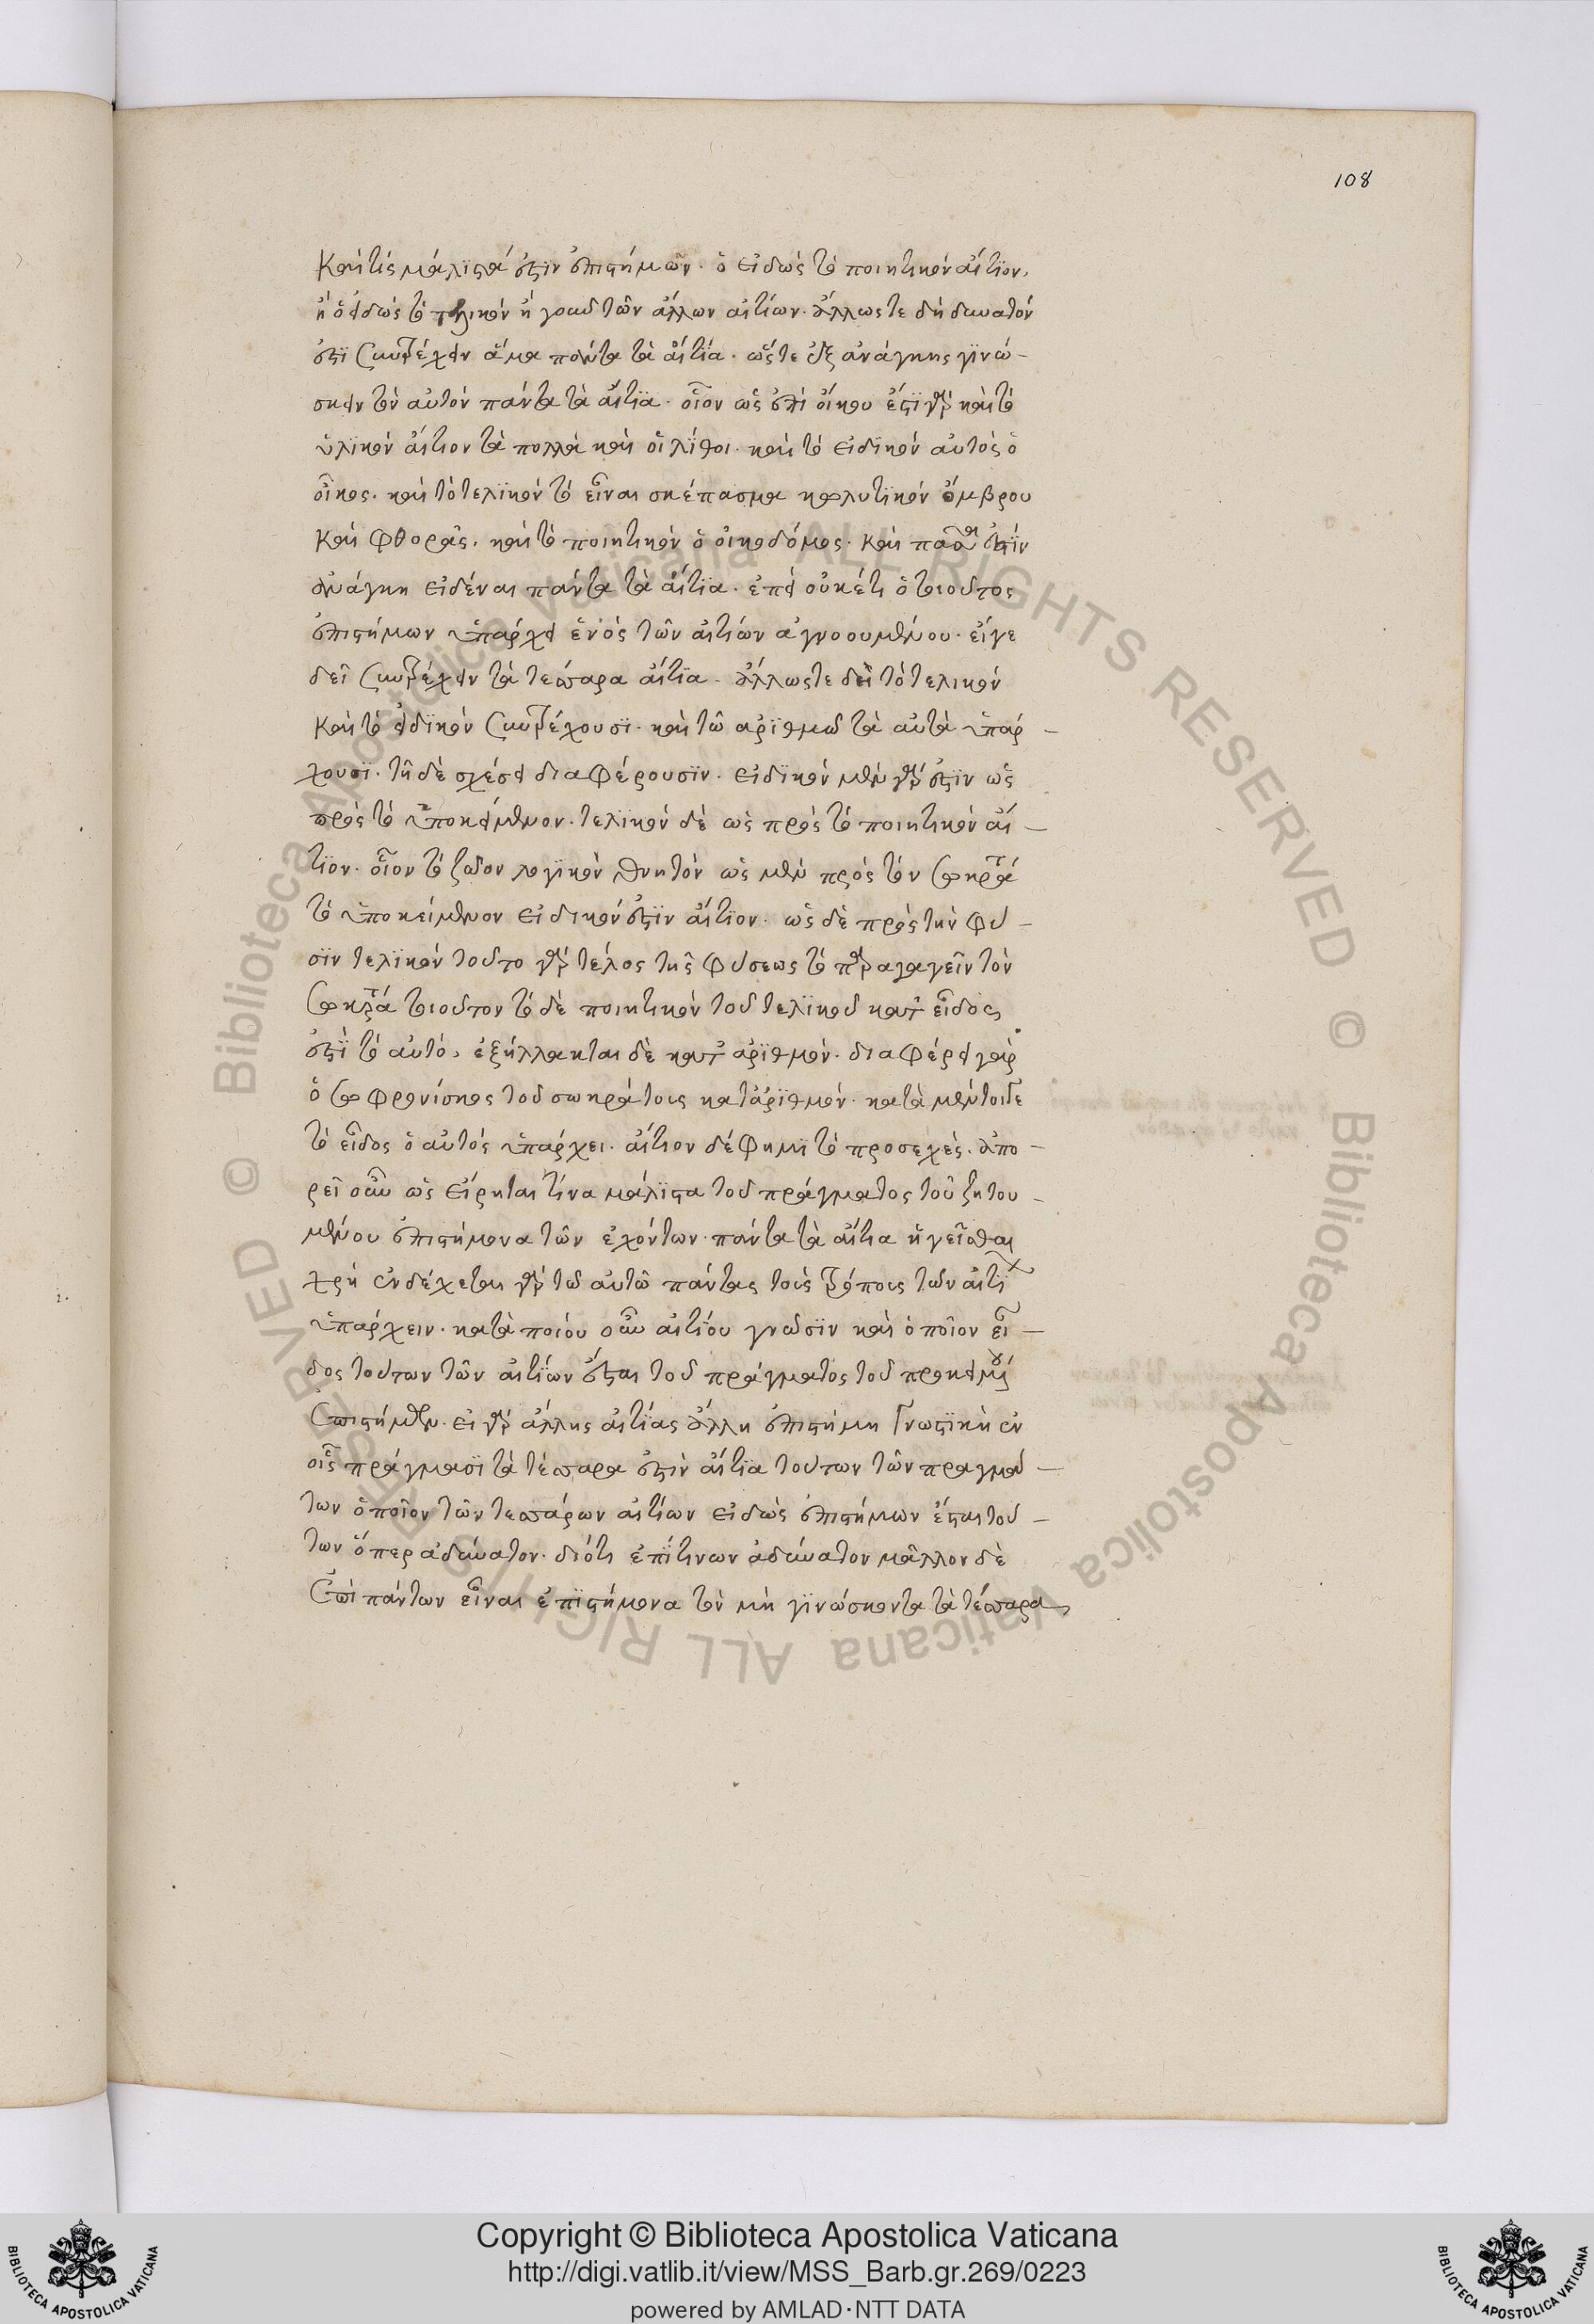 108
καὶ τίς μάλιστά ἐστιν ἐπιστήμων. ὁ εἰδὼς τὸ ποιητικὸν αἴτιον.
ἢ ὁ εἰδὼς τὸ τελικὸν ἢ γοῦν τῶν ἄλλων αἰτίων. ἄλλως τε δὴ δυνατόν
ἐστὶ συντρέχειν ἅμα πάντα τὰ αἴτια. ὥστε ἐξ ἀνάγκης γινώ-
σκειν τὸν αὐτὸν πάντα τὰ αἴτια. οἷον ὡς ἐπὶ οἴκου ἔστι γὰρ καὶ τὸ
ὑλικὸν αἴτιον τὰ πολλὰ καὶ οἱ λίθοι. καὶ τὸ εἰδικὸν αὐτὸς ὁ
οἶκος. καὶ τὸ τελικὸν τὸ εἶναι σκέπασμα κωλυτικὸν ὄμβρου
καὶ φθορᾶς. καὶ τὸ ποιητικὸν ὁ οἰκοδόμος. καὶ πᾶσα ἐστὶν
ἀνάγκη εἰδέναι πάντα τὰ αἴτια. ἐπεὶ οὐκέτι ὁ τοιοῦτος
ἐπιστήμων ὑπάρχει ἑνὸς τῶν αἰτιῶν ἀγνοουμένου. εἴγε
δεῖ συντρέχειν τὰ τέσσαρα αἴτια. ἄλλως τε δεῖ τὸ τελικὸν
καὶ τὸ εἰδικὸν συντρέχουσι. καὶ τῷ ἀριθμῷ τὰ αὐτὰ ὑπάρ-
χουσι. τῇ δὲ σχέσει διαφέρουσιν. εἰδικὸν μὲν γάρ ἐστιν ὡς
πρὸς τὸ ὑποκείμενον. τελικὸν δὲ ὡς πρὸς τὸ ποιητικὸν αἴ-
τιον. οἷον τὸ ζῶον λογικὸν θνητὸν ὡς μὲν πρὸς τὸν σωκράτη
τὸ ὑποκείμενον εἰδικόν ἐστιν αἴτιον. ὡς δὲ πρὸς τὴν φύ-
σιν τελικόν τοῦτο γὰρ τέλος τῆς φύσεως τὸ παραγαγεῖν τὸν
σωκράτη τοιοῦτον τὸ δὲ ποιητικὸν τοῦ τελικοῦ κατ' εἶδος
ἐστὶ τὸ αὐτό. ἐξήλλακται δὲ κατ' ἀριθμόν. διαφέρει γὰρ
ὁ σωφρονίσκος τοῦ σωκράτους κατ' ἀριθμόν. κατὰ μέντοι γε
τὸ εἶδος ὁ αὐτὸς ὑπάρχει. αἴτιον δέ φημι τὸ προσεχές. ἀπο-
ρεῖ οὖν ὡς εἴρηται τίνα μάλιστα τοῦ πράγματος τοῦ ζητου-
μένου ἐπιστήμονα τῶν ἐχόντων. πάντα τὰ αἴτια ἡγεῖσθαι
χρὴ ἐνδέχεται γὰρ τῷ αὐτῷ πάντας τοὺς τρόπους τῶν αἰτίων
ὑπάρχειν. κατὰ ποίου οὖν αἰτίου γνῶσιν καὶ ὁποῖον εἶ-
δος τούτων τῶν αἰτίων ἔσται τοῦ πράγματος τοῦ προκειμένου
ἐπιστήμην. εἰ γὰρ ἄλλης αἰτίας ἄλλη ἐπιστήμη γνωστικὴ ἐν
οἷς πράγμασι τὰ τέσσαρα ἐστὶν αἴτια τούτων τῶν πραγμά-
των ὁποῖον τῶν τεσσάρων αἰτίων εἰδὼς ἐπιστήμων ἔσται τού-
των ὅπερ ἀδύνατον. διότι ἐπί τινων ἀδύνατον μᾶλλον δὲ
ἐπὶ πάντων εἶναι ἐπιστήμονα τὸν μὴ γινώσκοντα τὰ τέσσαρα
Copyright © Biblioteca Apostolica Vaticana
http://digi.vatlib.it/view/MSS_Barb.gr.269/0223
powered by AMLAD·NTT DATA